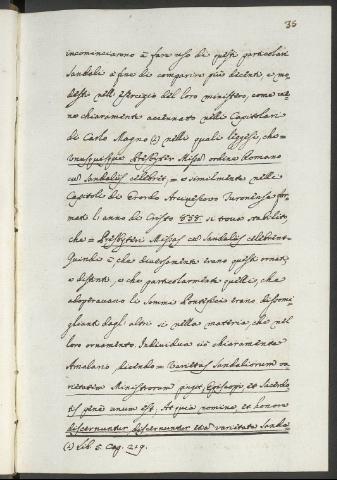 35
incominciarono à fare uso di questi particolari
Sandali à fine di comparire più decenti, e mo„
desti nell'esercizio del loro ministero, come vie„
ne chiaramente accennato nelli Capitolari
di Carlo Magno (a) nelli quali leggesi, che =
Unusquisque Presbyter Missam ordine Romano
cum Sandaliis celebret, = e similmente nelli
Capitoli di Erardo Arcivescovo Turonense
l'anno di Cristo 858. si trova stabilito
che = Presbyteri Missas cum Sandaliis celebrent =
Quindi è, che diversamente erano questi ornati,
e distinti, e che particolarmente quelli, che
adopravano li Sommi Pontefici erano dissomi„
glianti dagli altri sì nella materia, che nel
loro ornamento. Individua ciò chiaramente
Amalario dicendo = Varietas Sandaliorum va„
rietatem Ministrorum pingit, Episcopi, et Sacerdo„
tis pene unum est; At quia nomine, et honore
discernuntur discernuntur etiam varietate Sanda
(a) Lib. 5. Cap. 219.